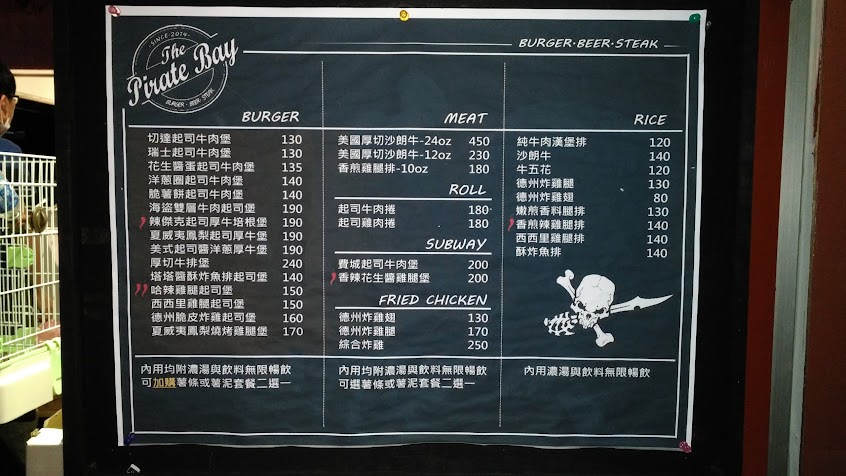 ·SINCE 2014·
The
Pirate Bay
BURGER · BEER · STEAK
BURGER·BEER·STEAK
BURGER
切達起司牛肉堡 130
瑞士起司牛肉堡 130
花生醬蛋起司牛肉堡 135
洋蔥圈起司牛肉堡 140
脆薯餅起司牛肉堡 140
海盜雙層牛肉起司堡 190
辣傑克起司厚牛培根堡 190
夏威夷鳳梨起司厚牛堡 190
美式起司醬洋蔥厚牛堡 190
厚切牛排堡 240
塔塔醬酥炸魚排起司堡 140
哈辣雞腿起司堡 150
西西里雞腿起司堡 150
德州脆皮炸雞起司堡 160
夏威夷鳳梨燒烤雞腿堡 170
內用均附濃湯與飲料無限暢飲
可加購薯條或薯泥套餐二選一
MEAT
美國厚切沙朗牛-24oz 450
美國厚切沙朗牛-12oz 230
香煎雞腿排-10oz 180
ROLL
起司牛肉捲 180
起司雞肉捲 180
SUBWAY
費城起司牛肉堡 200
香辣花生醬雞腿堡 200
FRIED CHICKEN
德州炸雞翅 130
德州炸雞腿 170
綜合炸雞 250
內用均附濃湯與飲料無限暢飲
可選薯條或薯泥套餐二選一
RICE
純牛肉漢堡排 120
沙朗牛 140
牛五花 120
德州炸雞腿 130
德州炸雞翅 80
嫩煎香料腿排 130
香煎辣雞腿排 140
西西里雞腿排 140
酥炸魚排 140
內用附濃湯與飲料無限暢飲